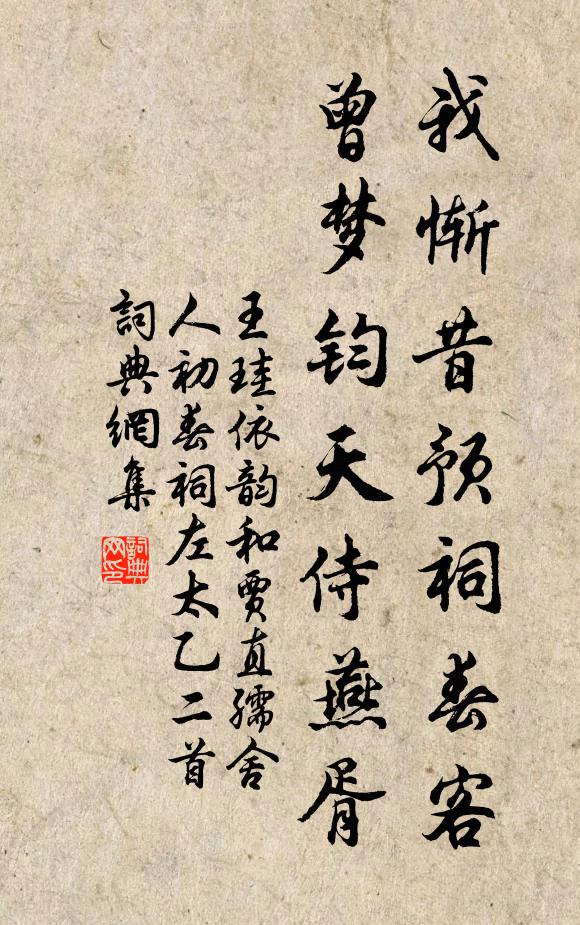 我惭昔预祠春客
曾梦钧天侍燕胥
王珪依韵和贾直孺舍
人初春祠左太乙二首
詞典網集
詞典
网印